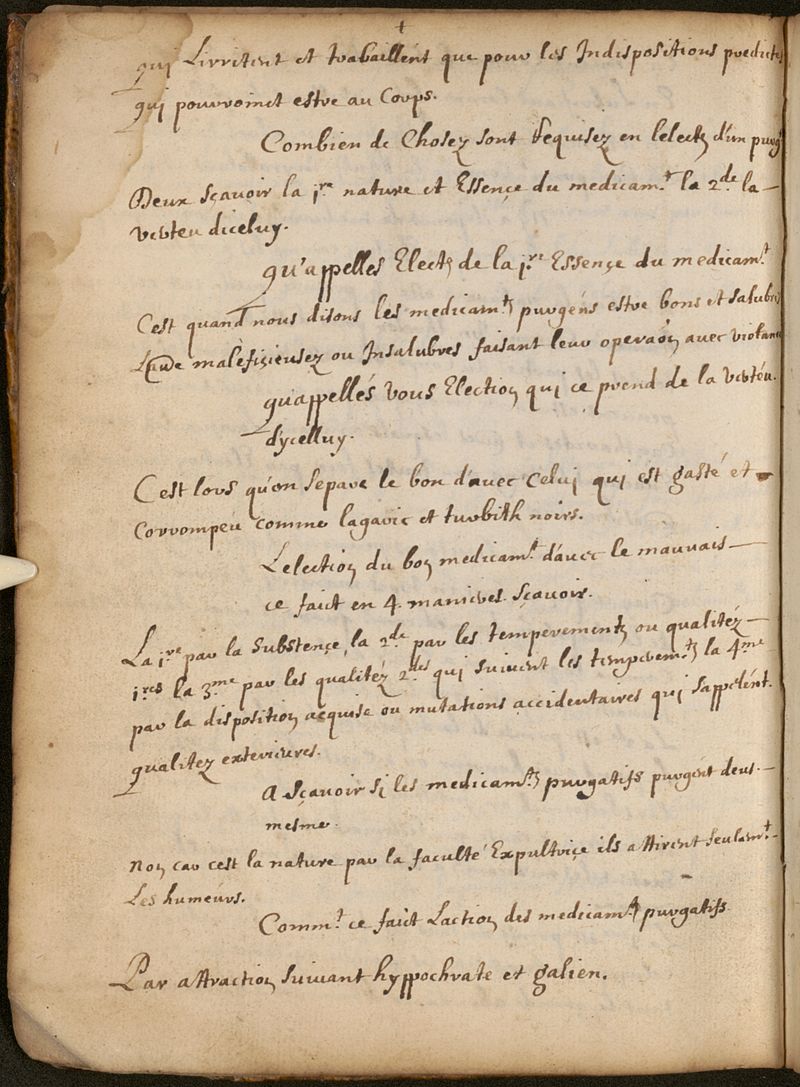 +
qui Lirritent et travaillent que pour les Indispositions predictes
qui pourroinct estre au Corps.
Combien de Chosez sont Requisez en lelect d'un purg
Deux sçavoir la 1re nature et Essençe du medicamt la 2de la
verteu diceluy.
qu'appelles Elect de la 1re Essençe du medicamt
Cest quand nous disons les medicamts purgéns estre bons et salubres
Laude malefiçieusez ou Insalubres faisant leur operaon avec violance
qu'appellés vous Election qui ce prend de la vertéu
dycelluy.
Cest lors qu'on separe le bon d'avec Celui qui est gasté et
Corrompeu comme lagaric et turbith noirs.
Lelection du bon medicamt d'avec le mauvais
ce faict en 4 manieres sçavoir.
La 1re par la substençe, la 2de par les temperements ou qualitéz
1res la 3me par les qualitéz 2des qui suivent les temperemts la 4me
par la disposition acquise ou mutations accidentaires qui sappelént
qualitez exterieures.
A sçavoir si les medicamts purgatifs purgent deus
mesme.
non car cest la nature par la faculté Expultriçe ils attirent seulemt
Les huméurs.
Commt ce faict Laction des medicamts purgatifs
Par attraction suivant hyppochrate et galien.